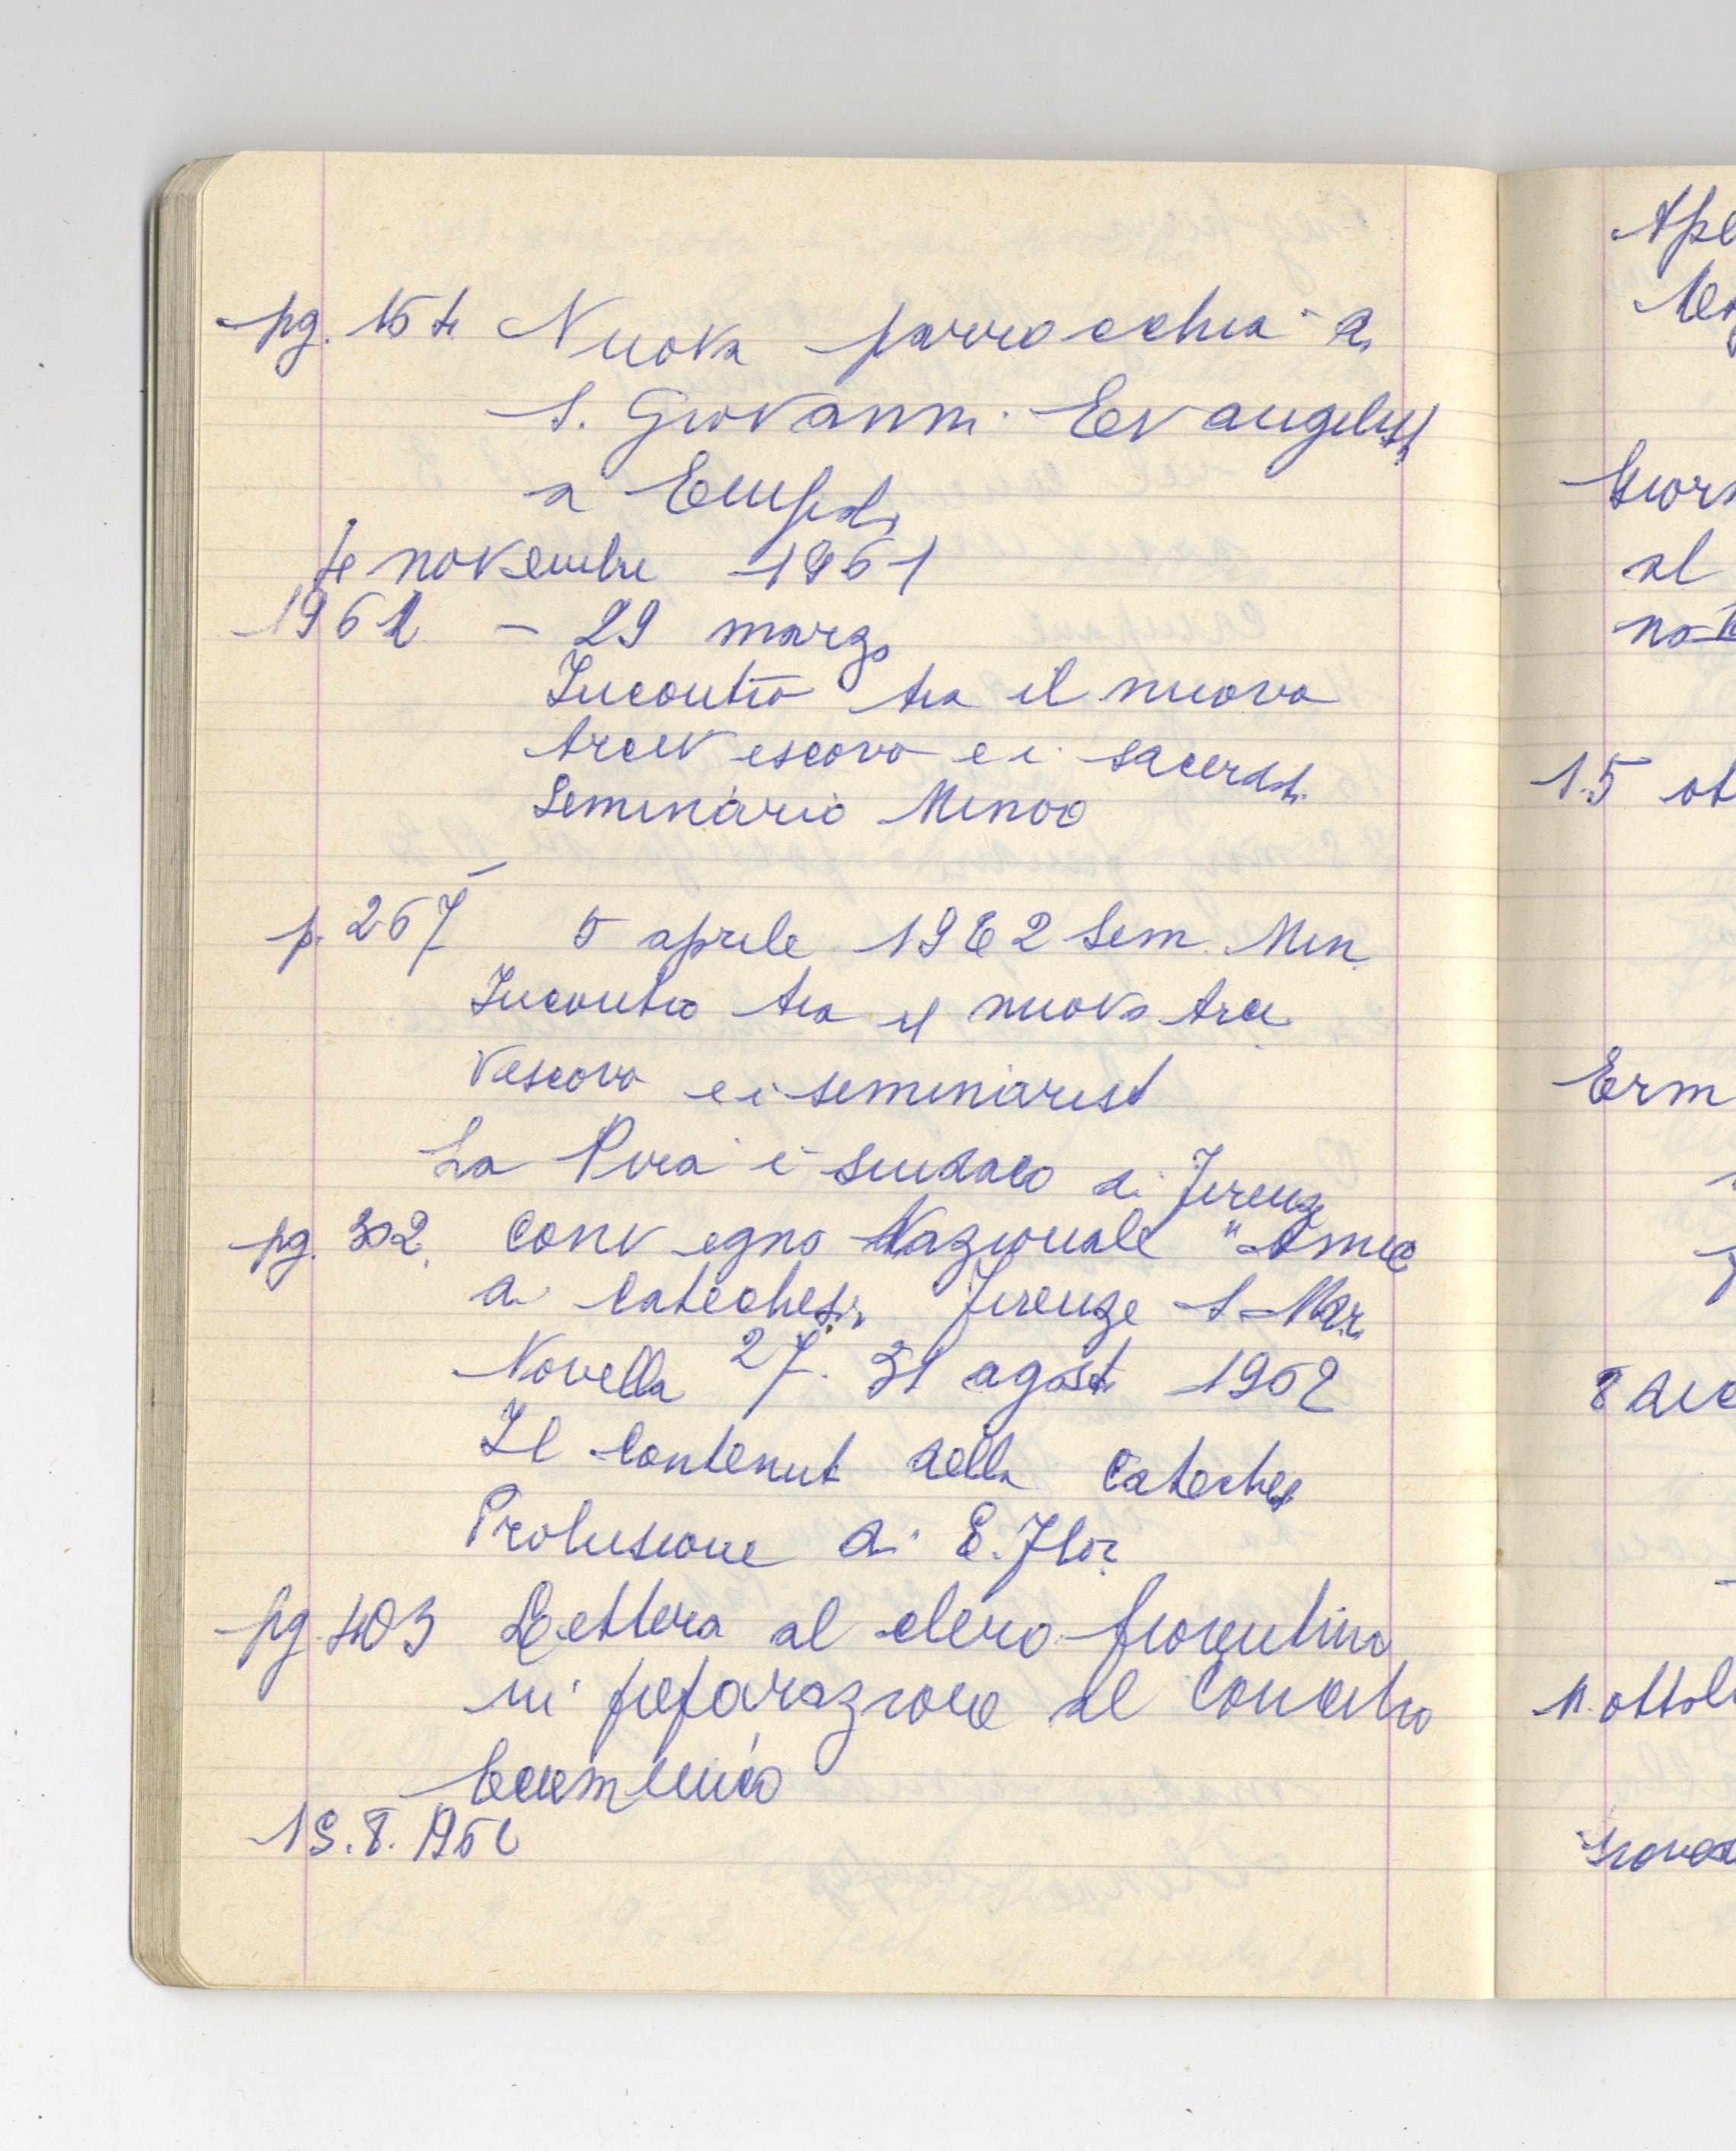 pg. 154 Nuova parrocchia di
S. Giovanni Evangelista
a Empoli
4 novembre 1961
1962 - 29 marzo
Incontro tra il nuovo
Arcivescovo e i sacerdoti
Seminario Minore
p. 267 5 aprile 1962 Sem. Min.
Incontro tra il nuovo Arci
vescovo e i seminaristi
La Pira è sindaco di Firenze
pg. 302. Convegno Nazionale "Amici
di Catechesi, Firenze S. Mar.
Novella 27. 31 agosto 1962
Il contenuto della Catechesi
Prolusione di E. Flor.
pg. 403 Lettera al clero fiorentino
in preparazione al Concilio
Ecumenico
15 ot
Erm
8 dic
11. ottob